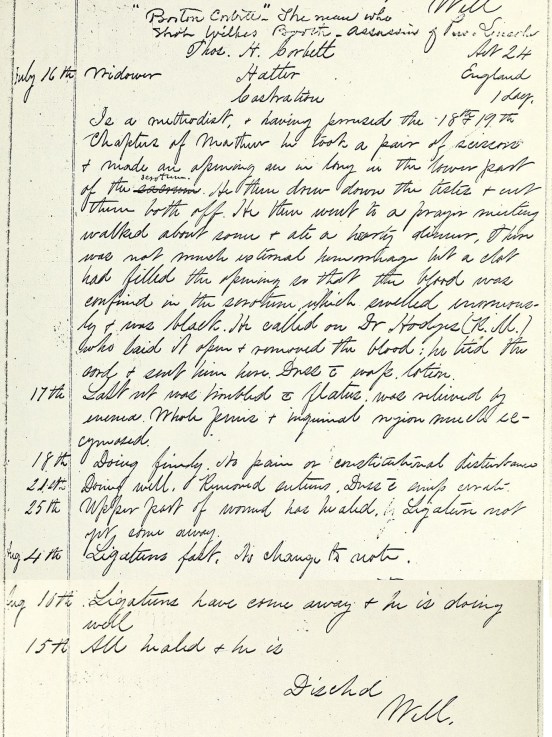 Will
"Boston Corbett" - The man who
shot Wilkes Booth - assassin of Pres. Lincoln
Thos. H. Corbett Aet 24
July 16th Widower Hatter England
Castration 1 day.
Is a methodist, & having perused the 18th & 19th
Chapters of Mathew he took a pair of scissors
& made an opening an in long in the lower part
of the sacrum scrotum. He then drew down the testes & cut
them both off. He then went to a prayer meeting
walked about some & ate a hearty dinner. There
was not much external hemorrhage but a clot
had filled the opening so that the blood was
confined in the scrotum which swelled enormous-
ly & was black. He called on Dr Hodges (R.M.)
who laid it open & removed the blood; he tied the
cord & sent him here. Dress c̄ evap. lotion.
17th Last nt was troubled c̄ flatus. was relieved by
enema. Whole penis & inguinal region much ec-
cymosed.
18th Doing finely. No pain or constitutional disturbance
21st Doing well. Removed sutures. Dress c̄ simp cerate
25th Upper part of wound has healed. Ligature not
yet come away.
Aug 4th Ligatures fast. No change to note.
Aug 10th Ligatures have come away & he is doing
well
15th All healed & he is
Dischd
Well.